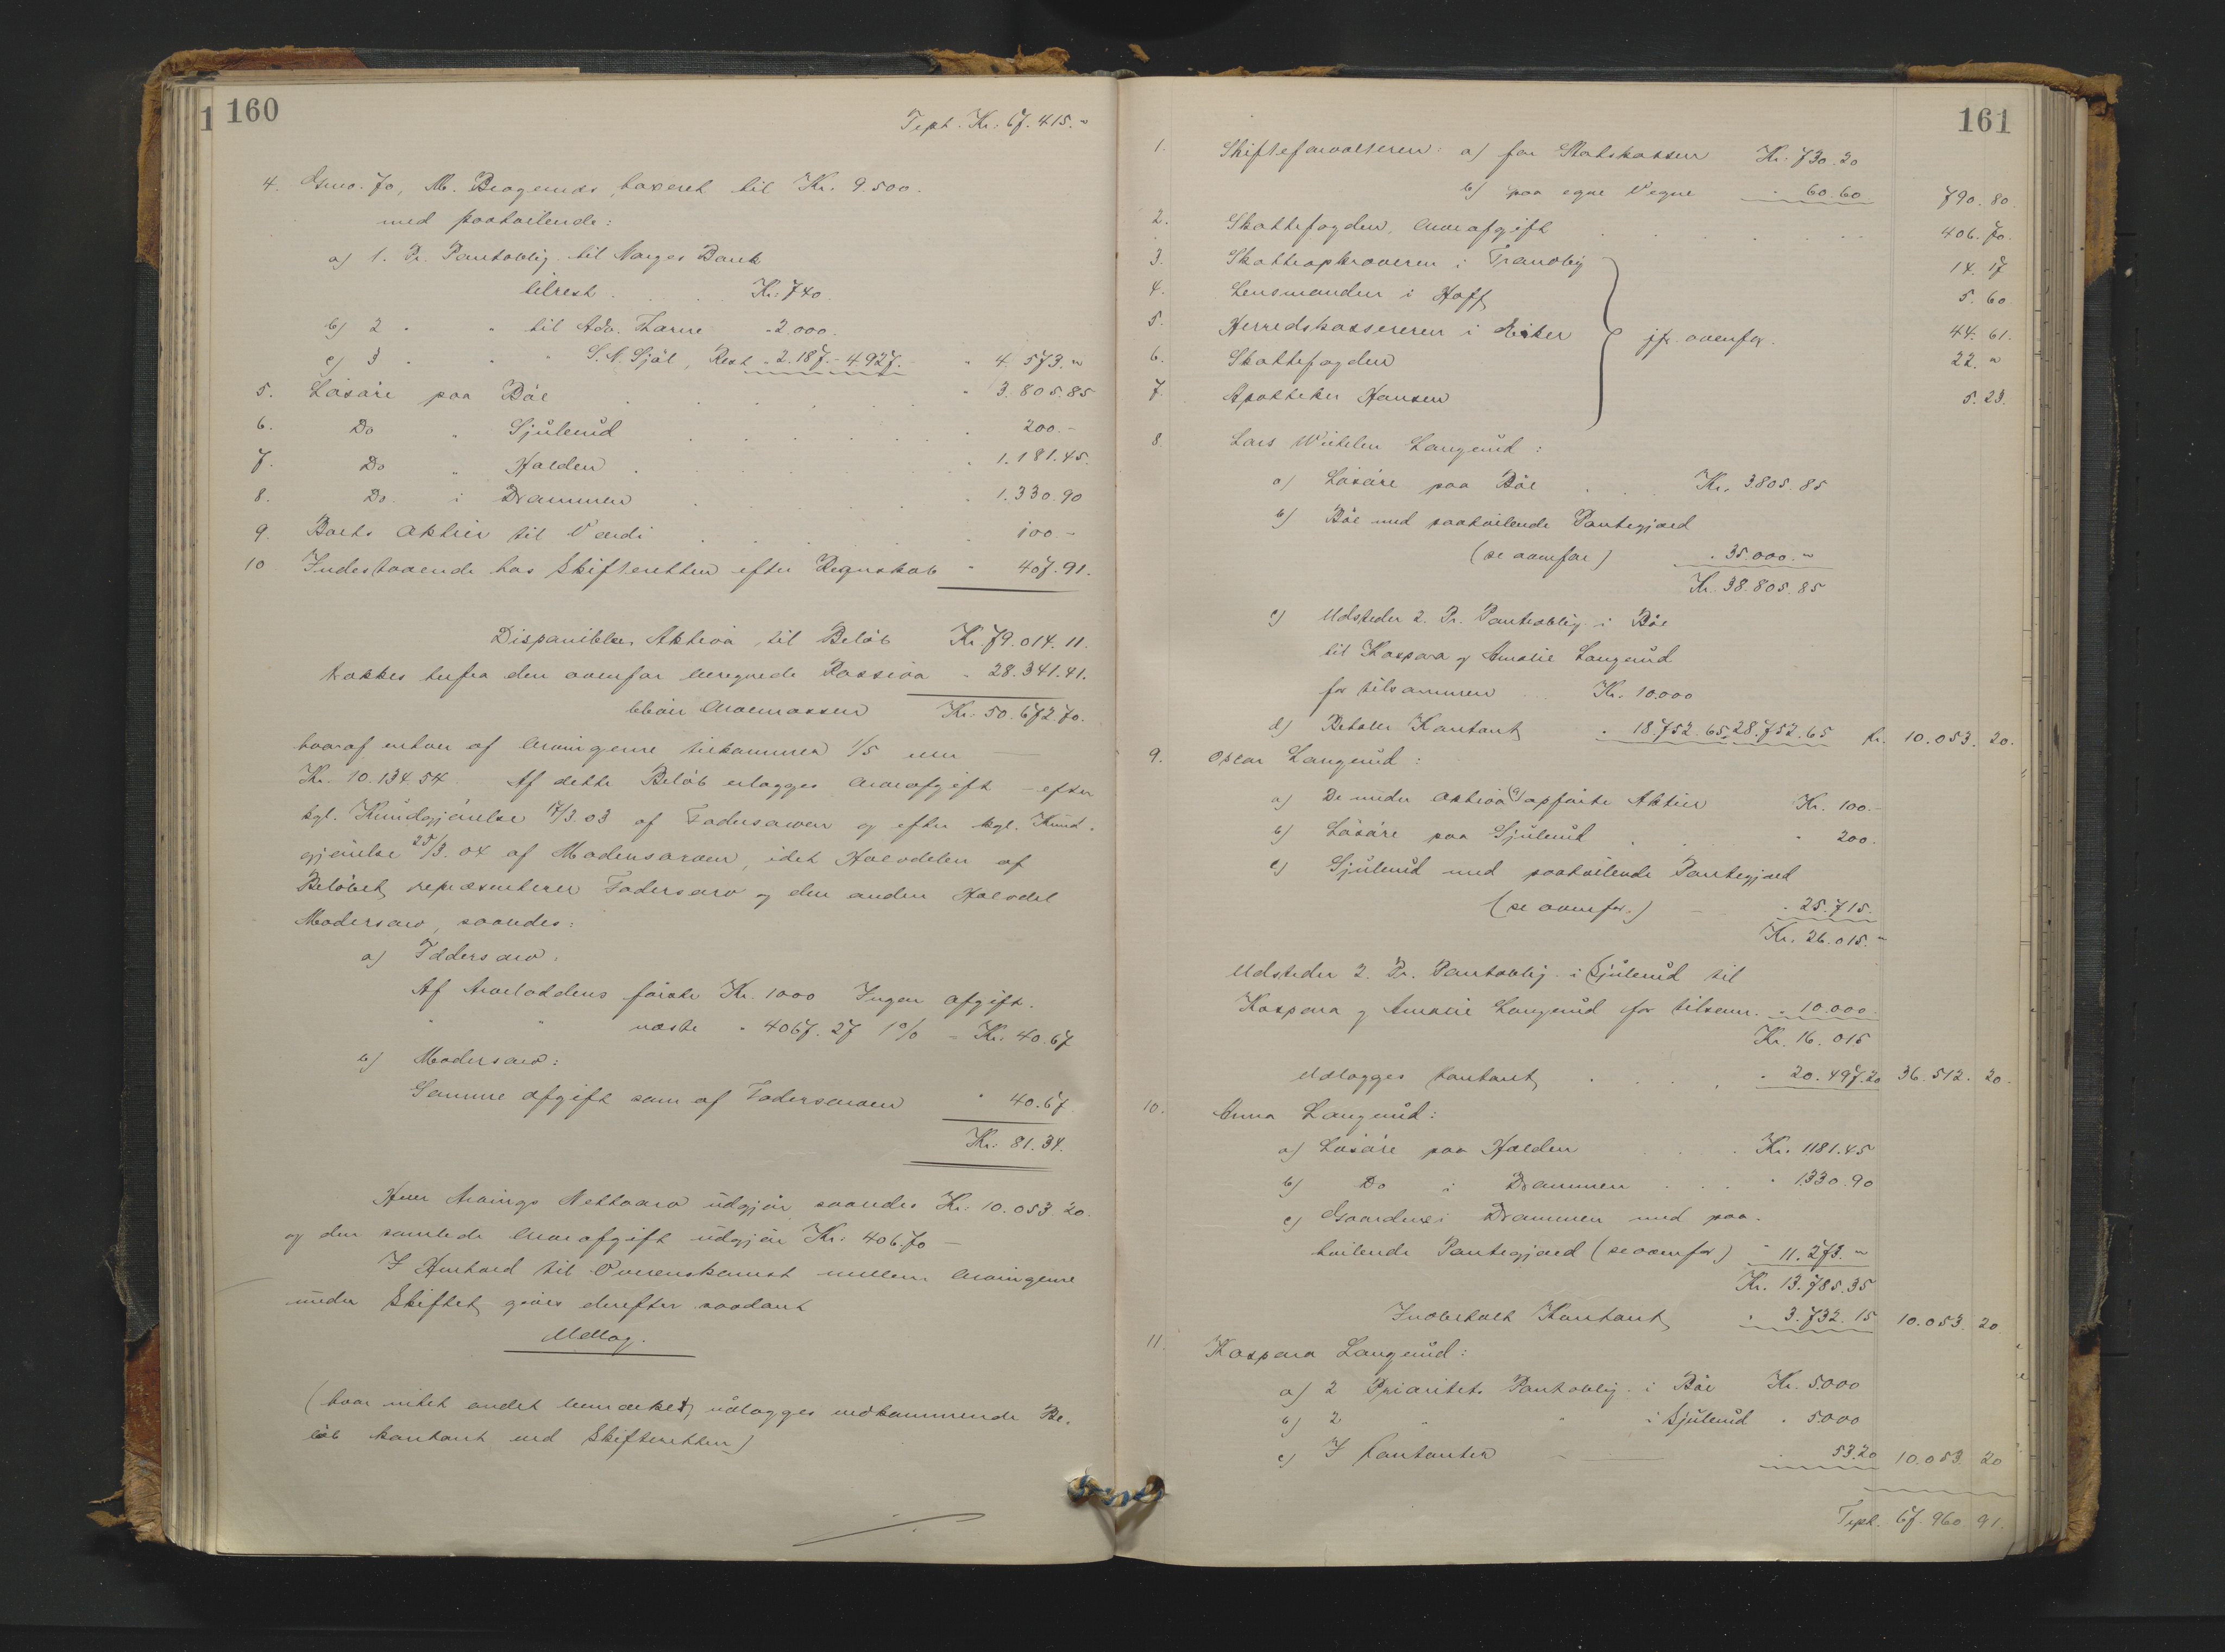 160
Tpt. Kr. 67.415.-
4. Gmo. 70, M. Bragernes, taxeret til Kr. 9.500.
med paahvilende:
a) 1. Pr. Pantoblig. til Norges Bank
tilrest . . . Kr. 740.
b) 2 " " til Adv. Thorne " 2.000.
c) 3 " " " S. N. Sjøl, Rest " 2.187.- 4.927. " 4.573.-
5. Løsøre paa Bøe " 3.805.85
6. Do " Gjulerud " 200.-
7. Do " Halden " 1.181.45.
8. Do i Drammen " 1.330.90
9. Boets aktier til Værdi " 100.-
10 Indestaaende hos Skifteretten efter Regnskab " 407.91.
Disponible Aktiva til Beløb Kr. 79.014.11.
trækkes herfra den ovenfor beregnede Passiva " 28.341.41.
bliver Arvemassen Kr. 50.672.70.
hvoraf enhver af Arvingerne tilkommer 1/5 eller
Kr. 10.134.54. Af dette Beløb erlægges Arveafgift - efter
kgl. Kundgjørelse 17/3.03 af Fadersarven og efter kgl. Kund-
gjørelse 25/3.04 af Modersarven, idet Halvdelen af
Beløbet repræsenterer Fadersarv og den anden Halvdel
Modersarv, saaledes:
a) Fadersarv:
Af Arveloddens første Kr. 1000 Ingen afgift.
" " næste " 4067.27 1% = Kr. 40.67
b) Modersarv:
Samme afgift som af Fadersarven " 40.67.
Kr. 81.34.
Hver Arvings Nettoarv udgjør saaledes Kr. 10.053.20.
og den samlede Arveafgift udgjør Kr. 406.70 -
I Henhold til Overenskomst mellem Arvingerne
under Skiftet gjøres derefter saadant
Udlæg.
(hvor intet andet bemærkes, udlægges vedkommende Be-
løb kontant ved Skifteretten)
161
1. Skifteforvalteren: a) for Statskassen Kr. 730.20
b) paa egne Vegne " 60.60 790.80.
2. Skattefogden, Arveafgift . . . 406.70.
3. Skatteopkræveren i Tranby 14.17
4. Lensmanden i Hoff 5.60
5. Herredskassereren i Eiker jfr. ovenfor. 44.61.
6. Skattefogden 22."
7. Apotheker Hansen 5.23.
8. Lars Wilhelm Langerud:
a) Løsøre paa Bøe . . Kr. 3805.85
b) Bøe med paahvilende Pantegjæld
(se ovenfor) " 35.000.-
Kr. 38.805.85
c) Udsteder 2. Pr. Pantoblig. i Bøe
til Kaspara og Amalie Langerud
for tilsammen . . Kr. 10.000
d) Betaler Kontant " 18.752.65. 28.752.65 Kr. 10.053.20.
9. Oscar Langerud:
a) De under aktiva 9) opførte Aktier Kr. 100.-
b) Løsøre paa Gjulerud . . " 200.
c) Gjulerud med paahvilende Pantegjæld
(se ovenfor.) - " 25.715.
Kr. 26.015.-
Udsteder 2. Pr. Pantoblig. i Gjulerud til
Kaspara og Amalie Langerud for tilsam. " 10.000.
Kr. 16.015
Udlægges kontant . . . . " 20.497.20 36.512.20.
10. Anna Langerud:
a) Løsøre paa Halden . . . Kr. 1181.45
b) Do i Drammen . . . " 1330.90
c) Gaarden i Drammen med paa-
hvilende Pantegjæld (se ovenfor) " 11.273.-
Kr. 13.785.35
Indbetalt Kontant " 3.732.15 10.053.20
11. Kaspara Langerud:
a) 2 Prioritets Pantoblig. i Bøe Kr. 5000
b) 2 " " i Gjulerud " 5000
c) I Kontanter " 53.20 10.053.20
Tpt. 67.960.91.